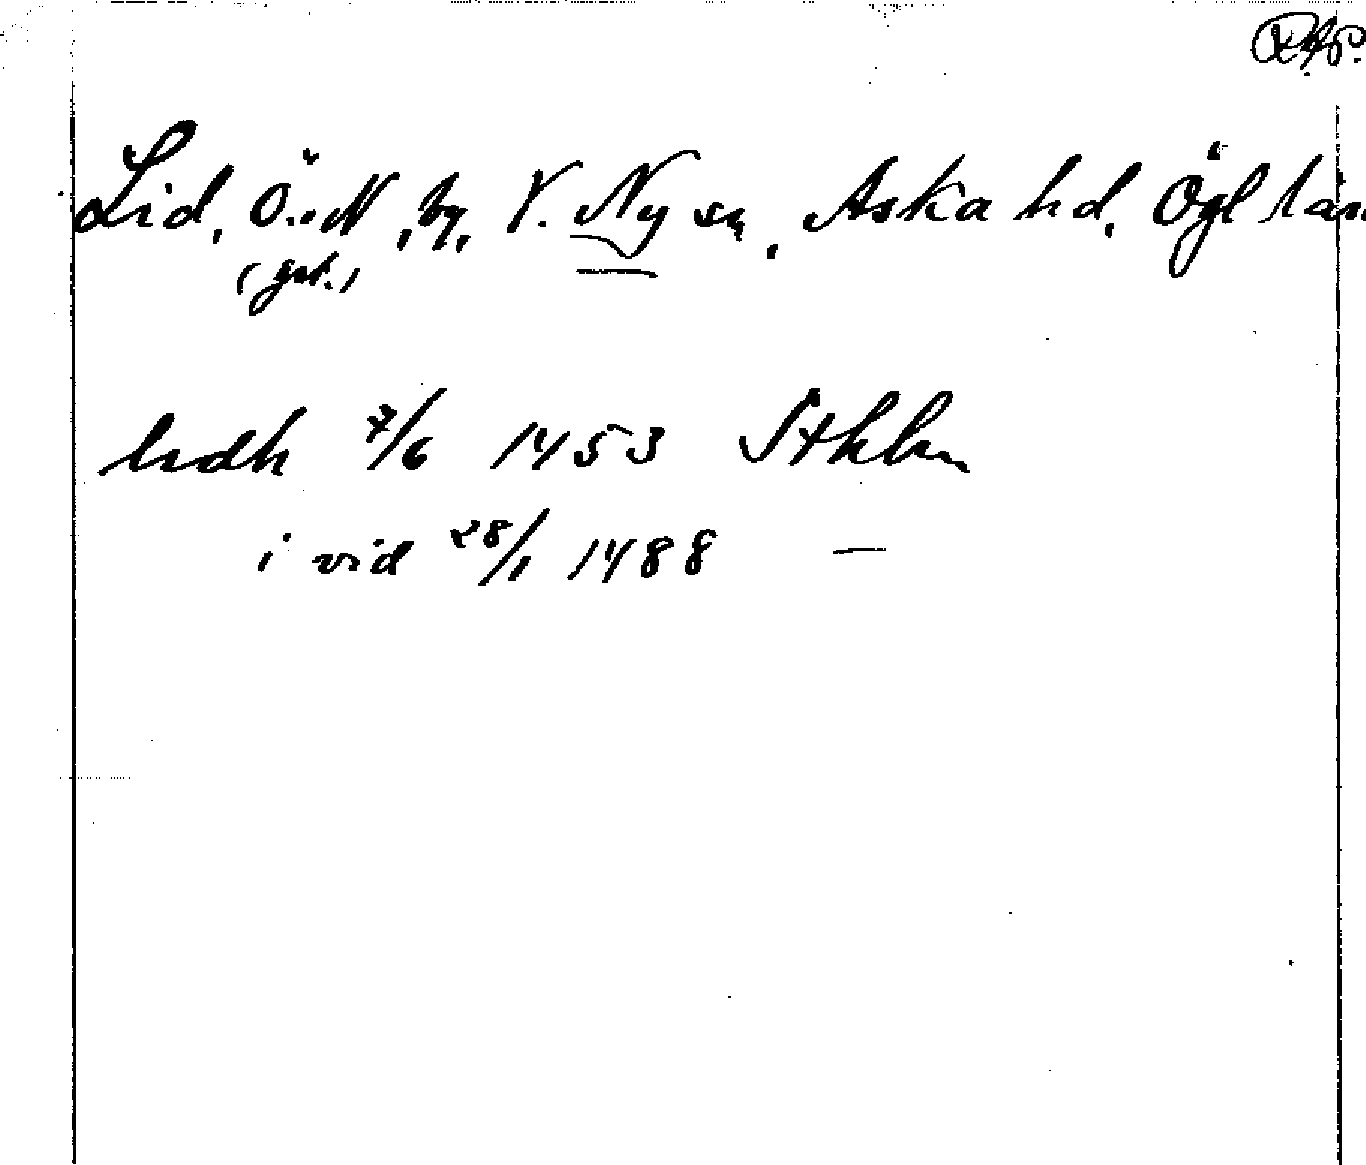 RAp.
Lid, Ö. o. N, by, V. Ny sn, Aska hd, Ögl län
(gd.)
lndh 7/6 1453 Sthlm
i vid 28/1 1488 —